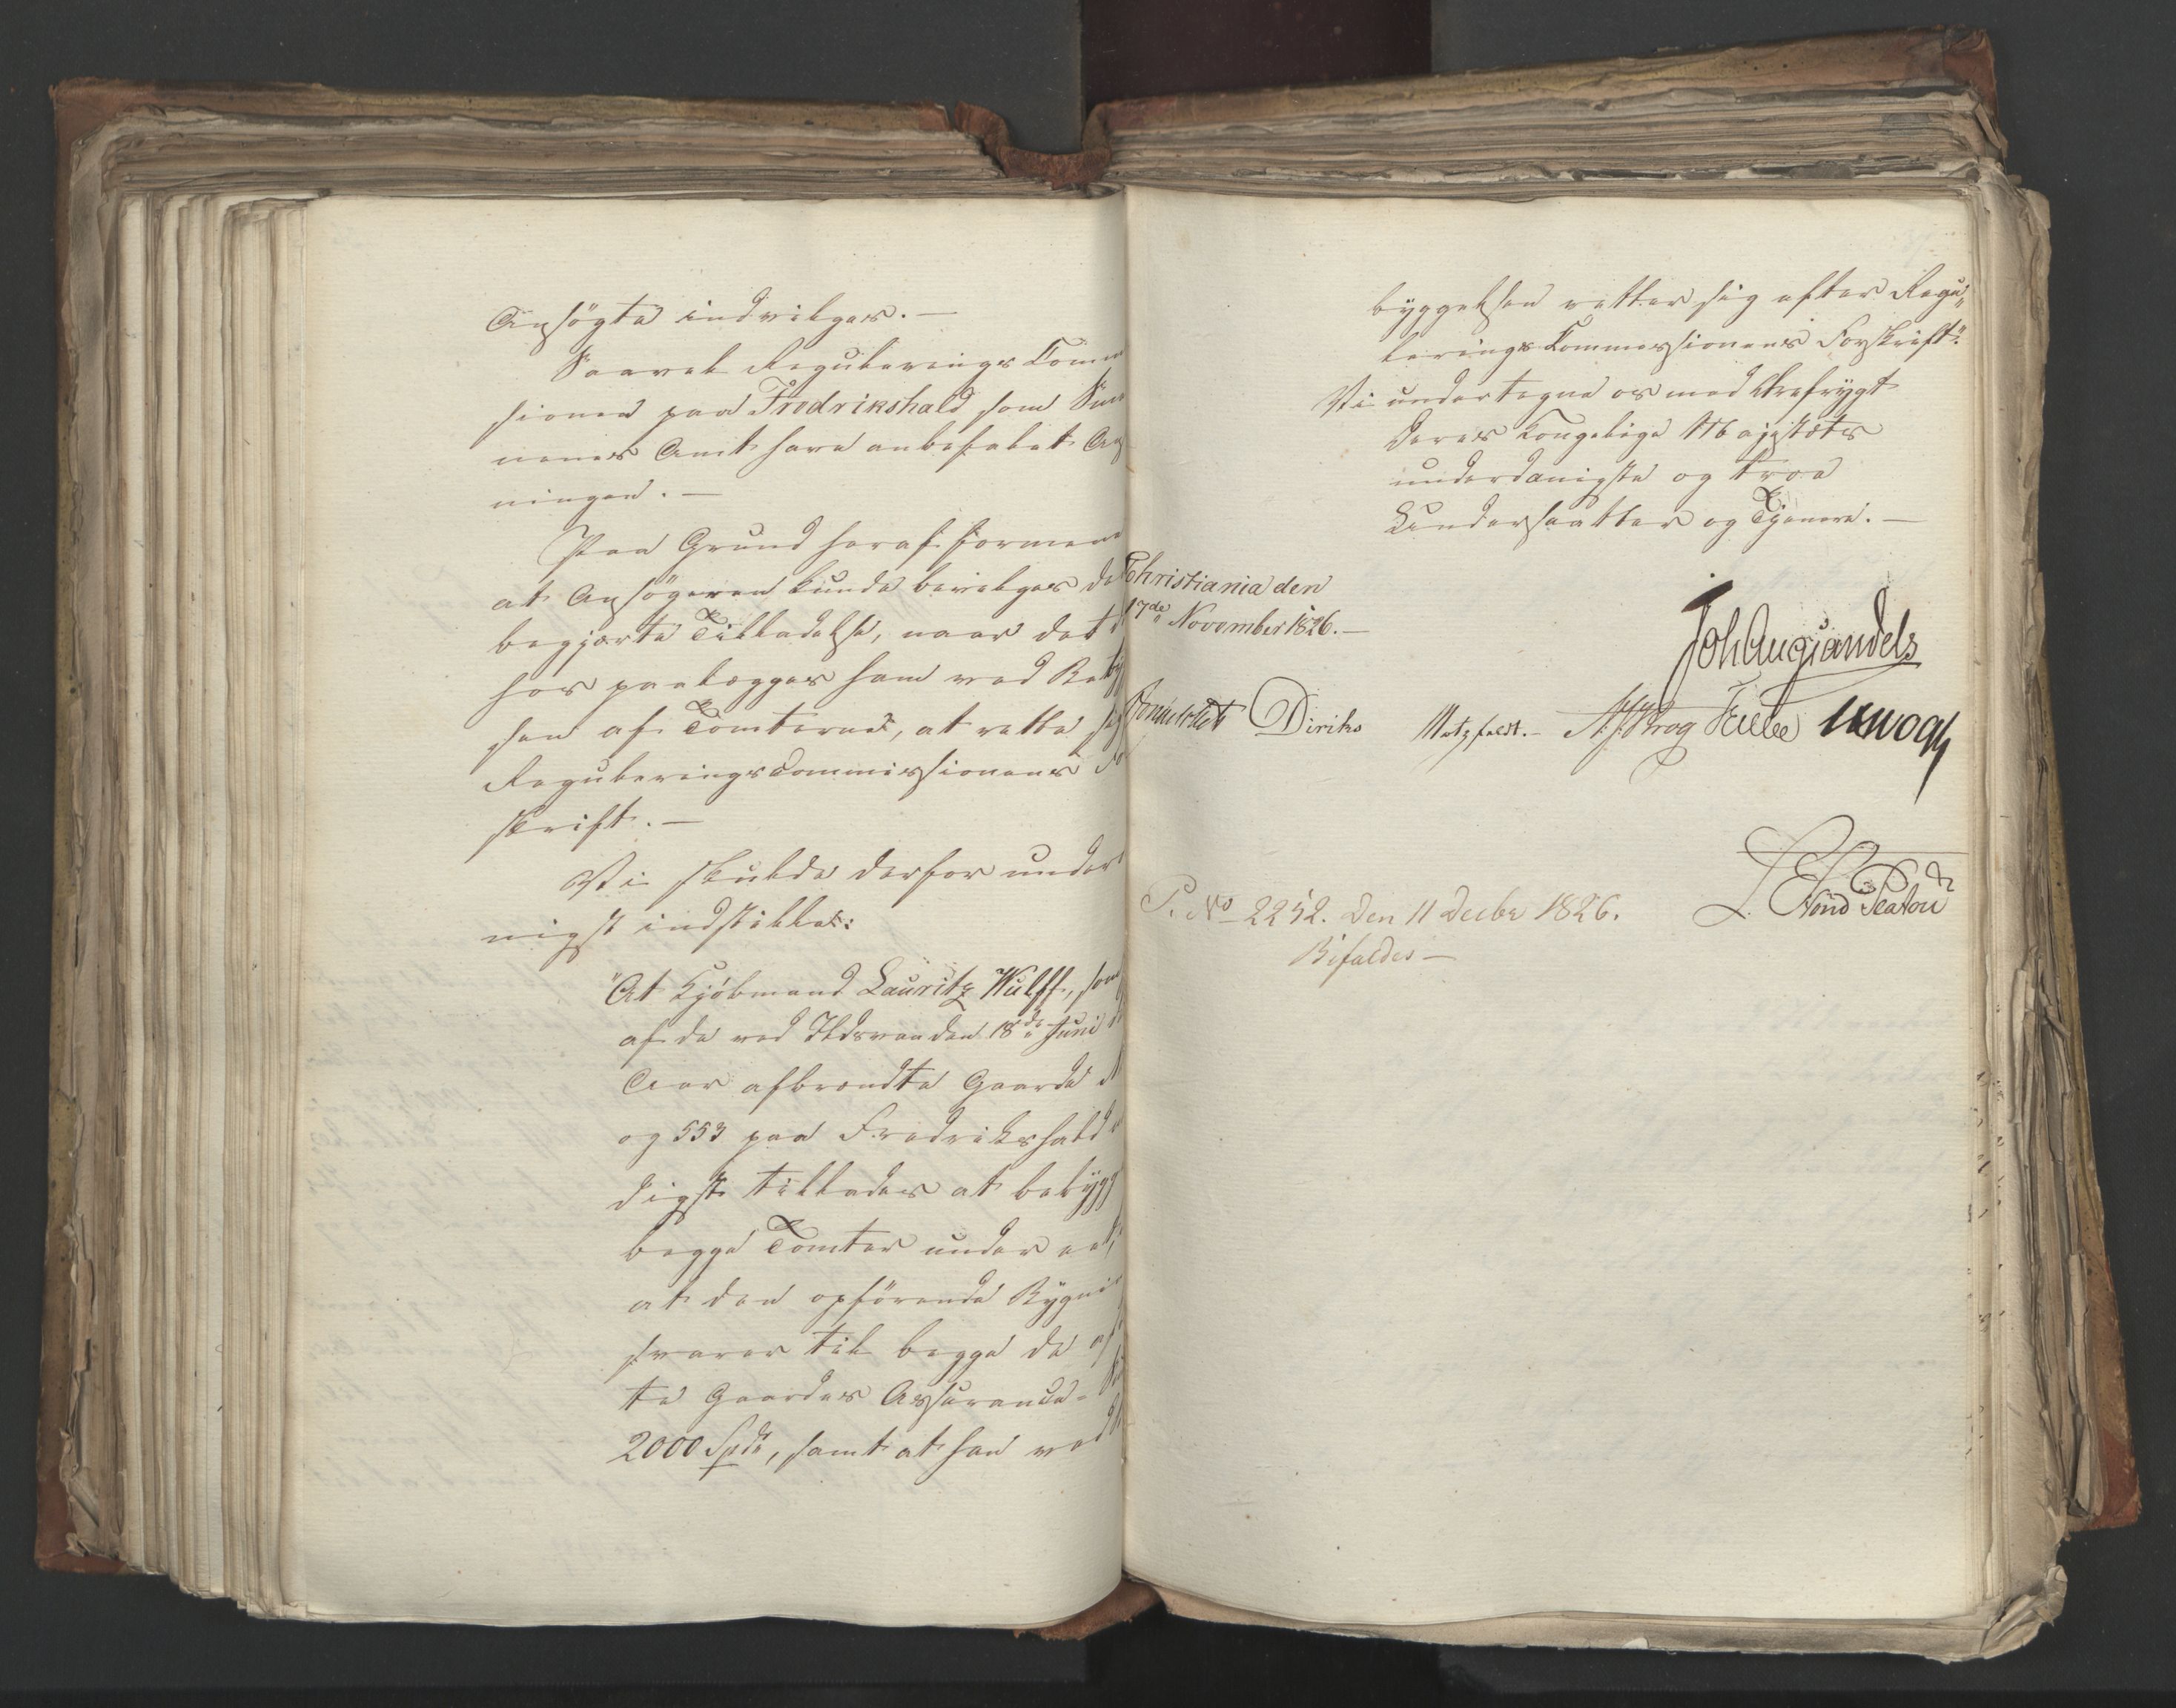 Ansögte indvilges.—
Saavel Regulerings Comm
sionen paa Fredrikshald som Smaa
nenes Amt have anbefalet An
ningen.—
Paa Grund heraf formene
at Ansögeren kunde bevilges de
begjærte Tilladelse, naar det
hos paalægges ham ved Beby
sen af Tomterne, at rette sig
Reguleringscommissionens Fo
skrift.—
Vi skulde derfor under
nigst indstille:
"At Kjöbmand Lauritz Wulff, som
af de ved Ildsvaaden 18de Juni d
Aar afbrændte Gaarde N
og 553 paa Fredrikshald n
digst tillades at bebygg
begge Tomter under eet,
at den opförende Bygni
svarer til begge de af
te Gaardes Assurance-
2000 Spd, samt at han ved
byggelsen retter sig efter Regu„
lerings Commissionens Forskrift".
Vi undertegne os med Ærefrygt
Deres Kongelige Majestæts
underdanigste og troe
Undersaatter og Tjenere.—
Christiania den
17de November 1826.—
Joh Aug Sandels
Diriks Motzfeldt.— Krog
P. No 2252. Den 11 Decbr 1826.
Bifaldes—